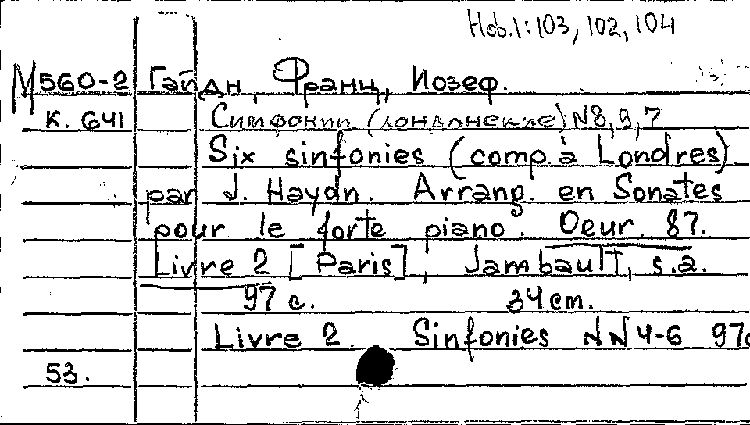 Hob.1:103, 102, 104
М560-2 Гайдн, Франц, Иозеф.
к. 641 Симфонии (лондонские) N8,9,7
Six sinfonies (comp. à Londres)
par J. Haydn. Arrang. en Sonates
pour le forte piano. Oeur. 87.
Livre 2 [Paris], Jambault, s.a.
97 с. 34 cm.
Livre 2. Sinfonies NN 4-6 97c
53.